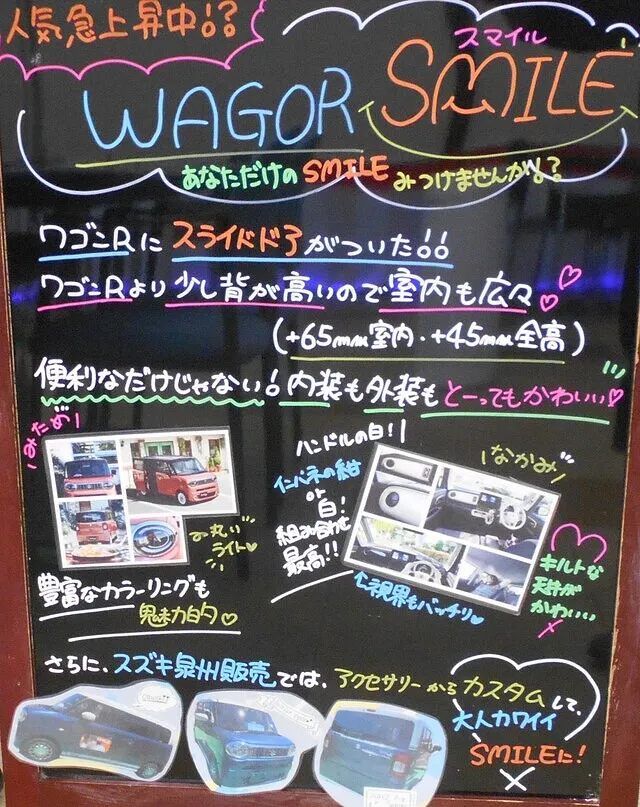 人気急上昇中!?
スマイル
WAGOR SMILE
あなただけのSMILEみつけませんか!?
ワゴンRにスライドドアがついた!!
ワゴンRより少し背が高いので室内も広々♡♡
(+65mm室内・+45mm全高)
便利なだけじゃない!内装も外装もとーってもかわいい♡
みため!
丸い
ライト♡
豊富なカラーリングも
魅力的♡
ハンドルの白!!
インパネの紺
or
白!
組み合わせ
最高!!
なかみ
視界もバッチリ♡
キルトな
天井が
かわいい
さらに、スズキ泉州販売では、アクセサリーからカスタムして、
大人カワイイ
SMILEに!